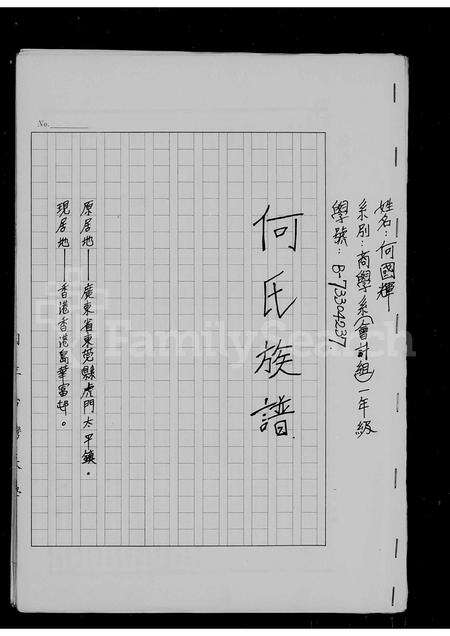 姓名：何國輝
系別：商學系（會計組）一年級
學號：B-73304237
何氏族譜
原居地——廣東省東莞縣虎門太平鎮。
現居地——香港香港島華富邨。
No.
FamilySearch